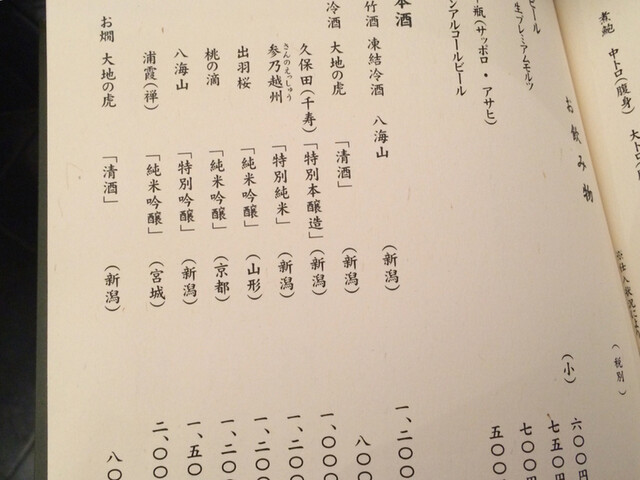 煮鮑 中トロ(腹身) 大ト
(税別)
お飲み物
(小)
ビール
生プレミアムモルツ 六〇〇円
七五〇円
瓶(サッポロ・アサヒ) 七〇〇円
ンアルコールビール 五〇〇
本酒
竹酒 凍結冷酒 八海山 (新潟) 一、二〇〇
冷酒 大地の虎 「清酒」 (新潟) 八〇
久保田(千寿) 「特別本醸造」 (新潟) 一、〇〇〇
参乃越州 「特別純米」 (新潟) 一、二〇〇
さんのえっしゅう
出羽桜 「純米吟醸」 (山形) 一、二〇〇
桃の滴 「純米吟醸」 (京都) 一、二〇
八海山 「特別吟醸」 (新潟) 一、五〇
浦霞(禅) 「純米吟醸」 (宮城) 二、〇〇
お燗 大地の虎 「清酒」 (新潟) 八〇